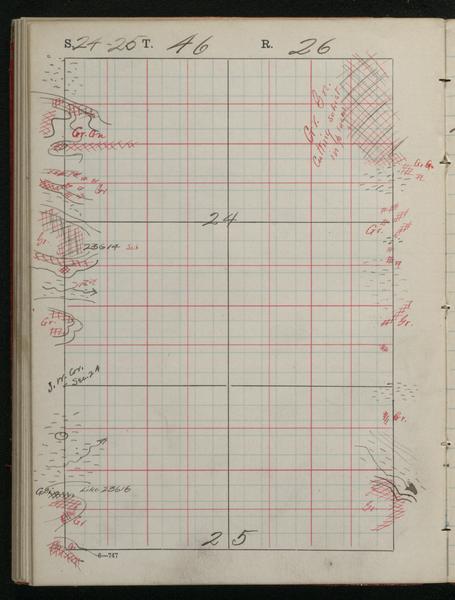 S. 24-25 T. 46 R. 26
Gr. Gn.
Cutting schist
Gr. Gn.
Gr. Gn.
Gr
24
Gr.
Gr.
23614 Sch
Gr.
Gr.
Sec. 24
Gr.
Like 23616
Gr
Gr.
Gr
25
6—747